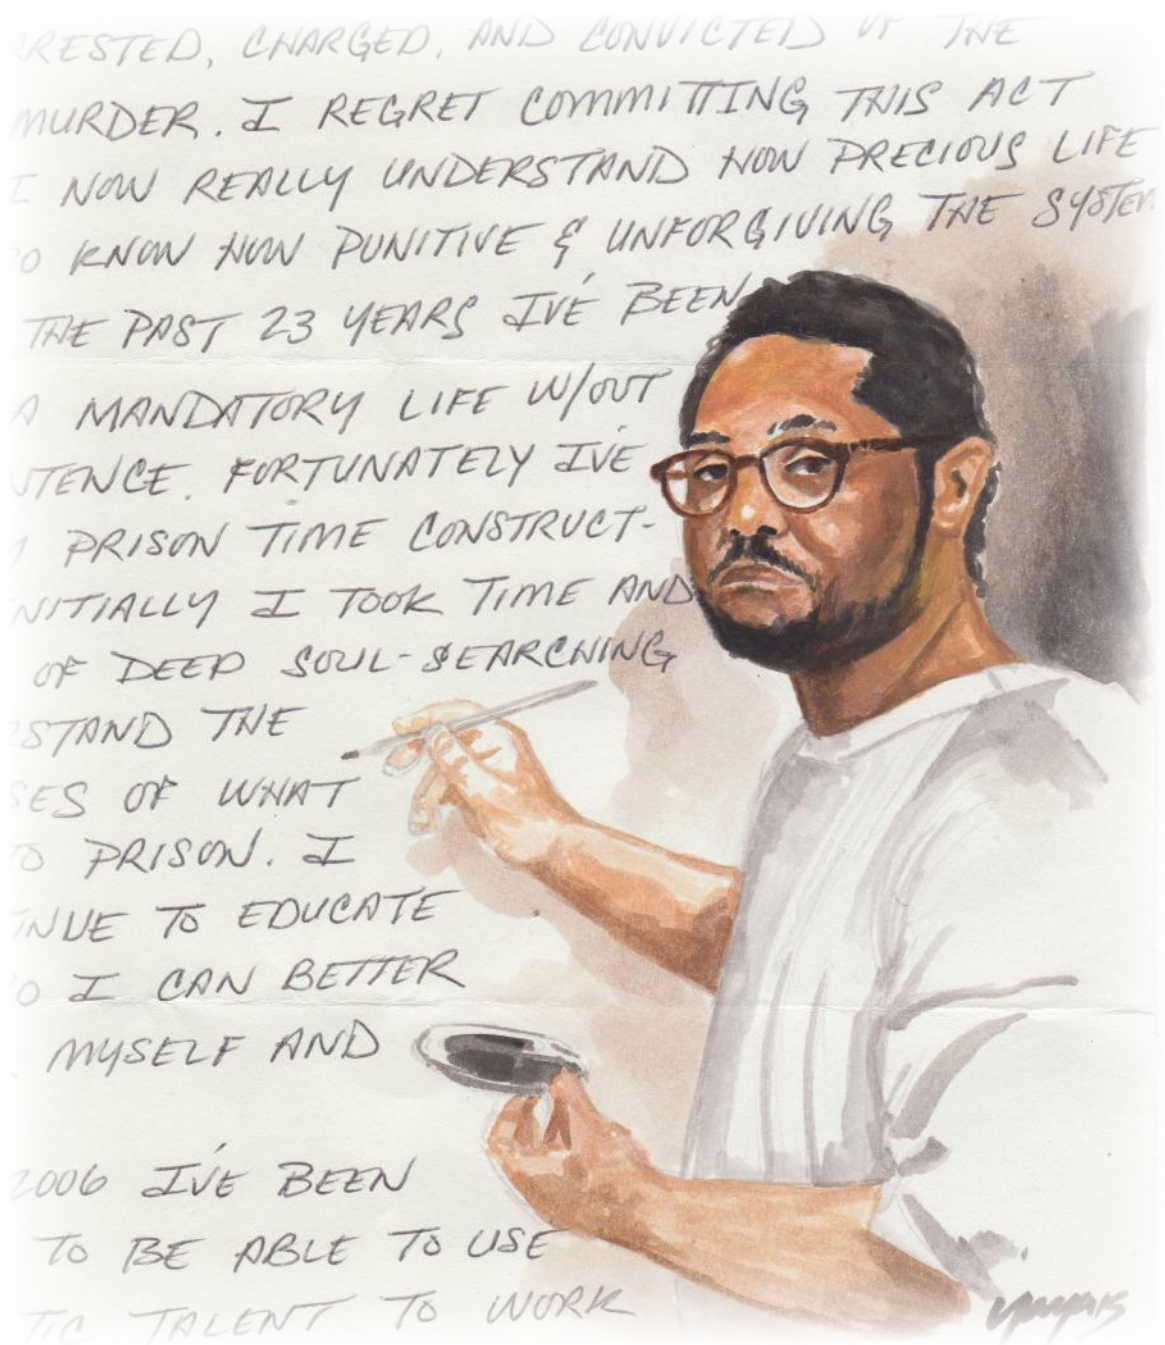 RRESTED, CHARGED, AND CONVICTED OF THE
MURDER. I REGRET COMMITTING THIS ACT
I NOW REALLY UNDERSTAND HOW PRECIOUS LIFE
O KNOW HOW PUNITIVE & UNFORGIVING THE SYSTEM
THE PAST 23 YEARS I'VE BEEN
A MANDATORY LIFE W/OUT
NTENCE. FORTUNATELY I'VE
PRISON TIME CONSTRUCT-
NITIALLY I TOOK TIME AND
OF DEEP SOUL-SEARCHING
STAND THE
SES OF WHAT
O PRISON. I
INUE TO EDUCATE
O I CAN BETTER
MYSELF AND
2006 I'VE BEEN
TO BE ABLE TO USE
TIC TALENT TO WORK